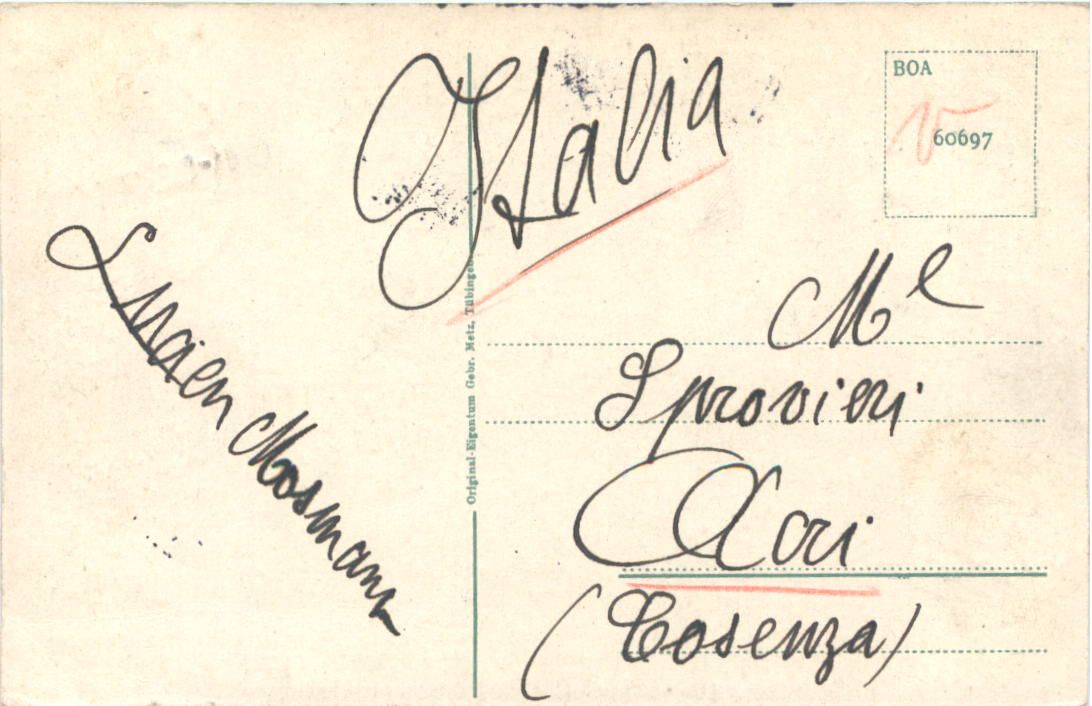 Italia
BOA
60697
Lucien Mosmann
Original-Eigentum Gebr. Metz, Tübingen
Mˡᵉ
Sprovieri
Acri
(Cosenza)